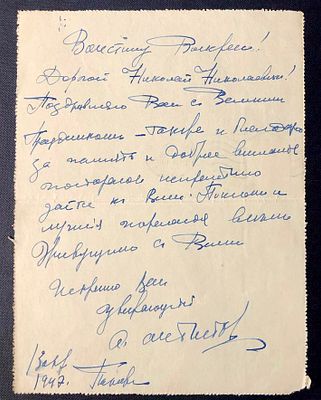 Воистину Воскресе!
Дорогой Николай Николаевич!
Поздравляю Вас с Великим
Праздником – также и благодарю
за память и доброе внимание
постараюсь непременно
зайти к Вам. Поклоны и
лучшие пожелания всем
живущим с Вами
Искренно Вас
уважающий
А.
1947.